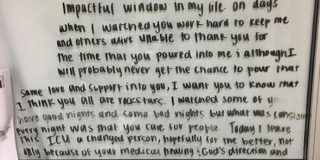 Impactful window in my life on days
when I watched you work hard to keep me
and others alive unable to thank you for
the time that you poured into me & although I
will probably never get the chance to pour that
same love and support into you, I want you to know that
I think you all are rockstars. I watched some of you
have good nights and some bad nights but what was consistent
every night was that you care for people. Today I leave
this ICU a changed person, hopefully for the better, not
only because of your medical healing & God's direction and